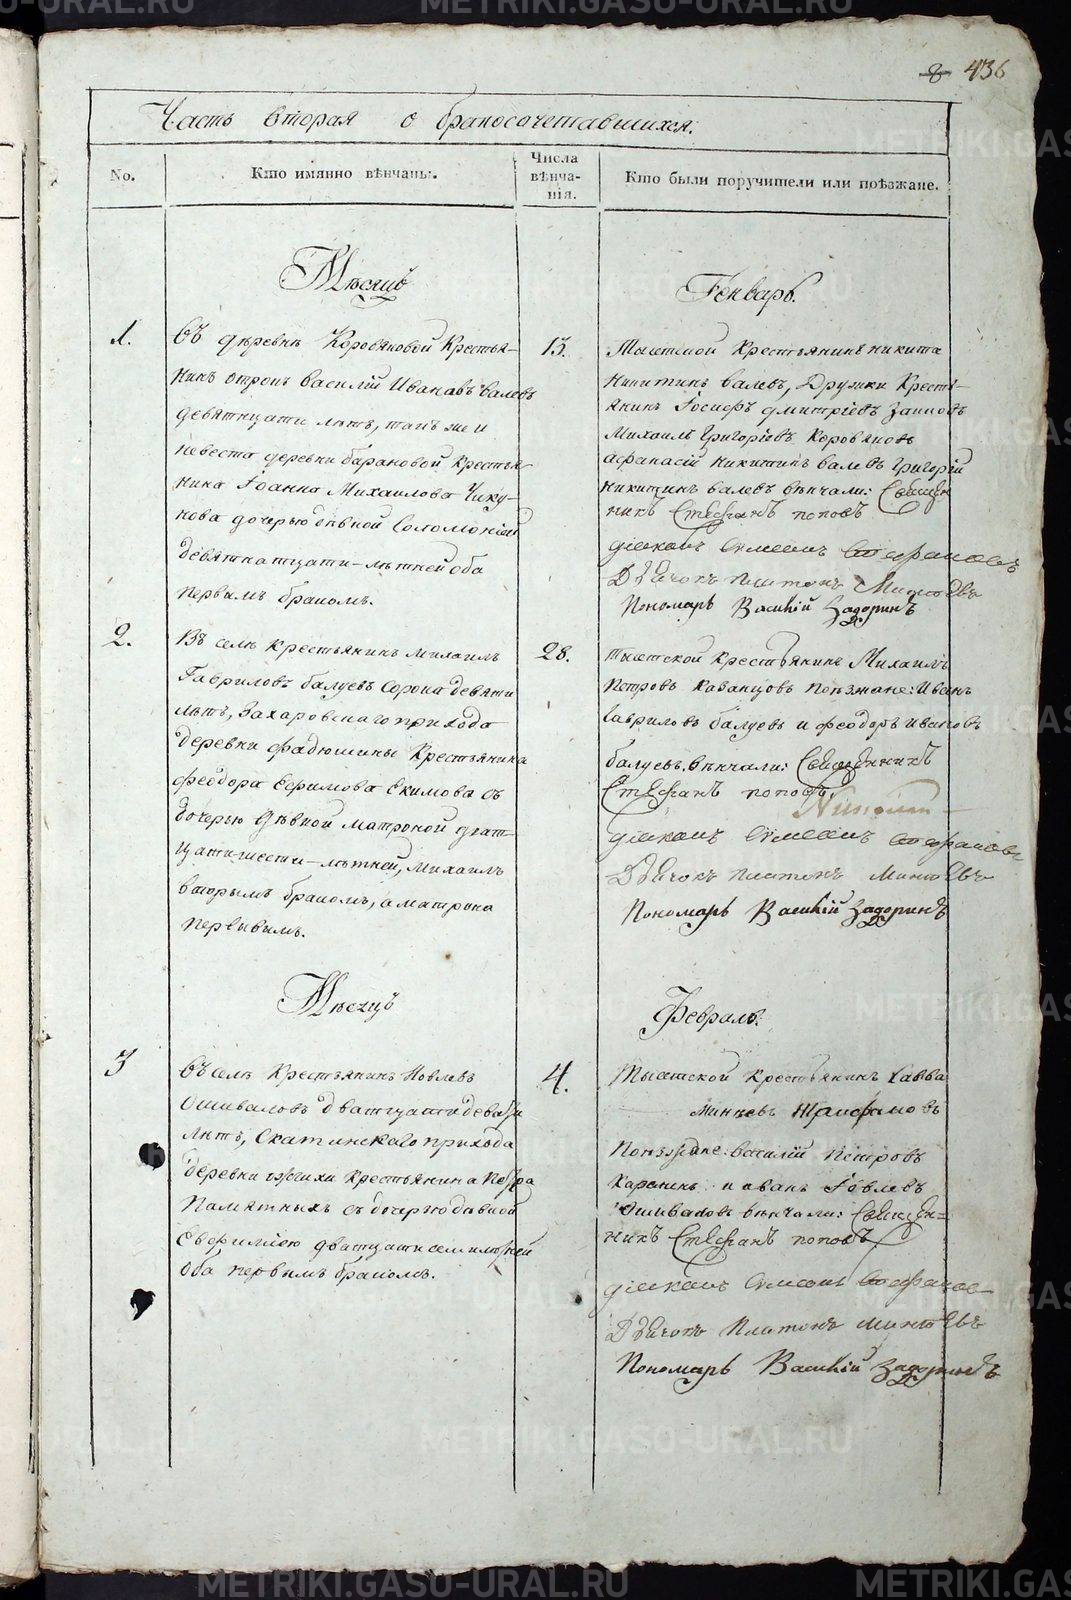 8 436
Часть вторая о бракосочетавшихся.
No.
Кто имянно вѣнчаны.
Числа вѣнча-нія.
Кто были поручители или поѣзжане.
Мѣсяцъ
Генварь.
1.
Въ деревнѣ Коровяковой Крестья-
нинъ отрокъ василій Ивановъ валевъ
девятнцати лѣтъ, такъ же и
невеста деревни барановой крестья
нина Іоанна Михаилова Чику-
нова дочерью дѣвкой Соломоніей
девятнатцати-лѣтней оба
первымъ бракомъ.
13.
Тыгетской крестьянинъ никита
никитинъ валевъ, Дружки Кресть-
янинъ Іосифъ дмитріевъ
Михаилъ Григоріевъ Коровяковъ
афанасій никитинъ валевъ григорій
никитинъ валевъ вѣнчали: Священ
никъ Стефанъ поповъ
діаконъ Симеонъ Стефановъ
Дьячокъ платонъ
Пономарь Василій Задоринъ
2.
Въ селѣ крестьянинъ михаилъ
Гавриловъ балуевъ сорока девяти
лѣтъ, Захаровскаго прихода
деревни фадюшины Крестьянина
феодора Ефимова Екимова съ
дочерью дѣвкой матроной дват-
цатишести-лѣтней, михаилъ
вторымъ бракомъ, а матрона
первымъ.
28.
крестьянинъ Михаилъ
Петровъ Казанцовъ поѣзжане: Иванъ
Гавриловъ балуевъ и феодоръ ивановъ
балуевъ. вѣнчали: Священникъ
Стефанъ поповъ
діаконъ Симеонъ Стефановъ
Дьячокъ платонъ
Пономарь Василій Задоринъ
Мѣсецъ
Февраль.
3
Въ селѣ Крестьянинъ Іовлевъ
Ошиваловъ дватцати девяти
лѣтъ, Скатинскаго прихода
деревни крестьянина Петра
Памятныхъ съ дочерью дѣвкой
Евфиміею дватцати семилѣтней
оба первымъ бракомъ.
4.
крестьянинъ Савва
поѣзжане: василій Петровъ
и иванъ Іовлевъ
Ошиваловъ вѣнчали: Священ-
никъ Стефанъ поповъ
діаконъ Симеонъ Стефановъ
Дьячокъ Платонъ
Пономарь Василій Задоринъ
METRIKI.GASO-URAL.RU